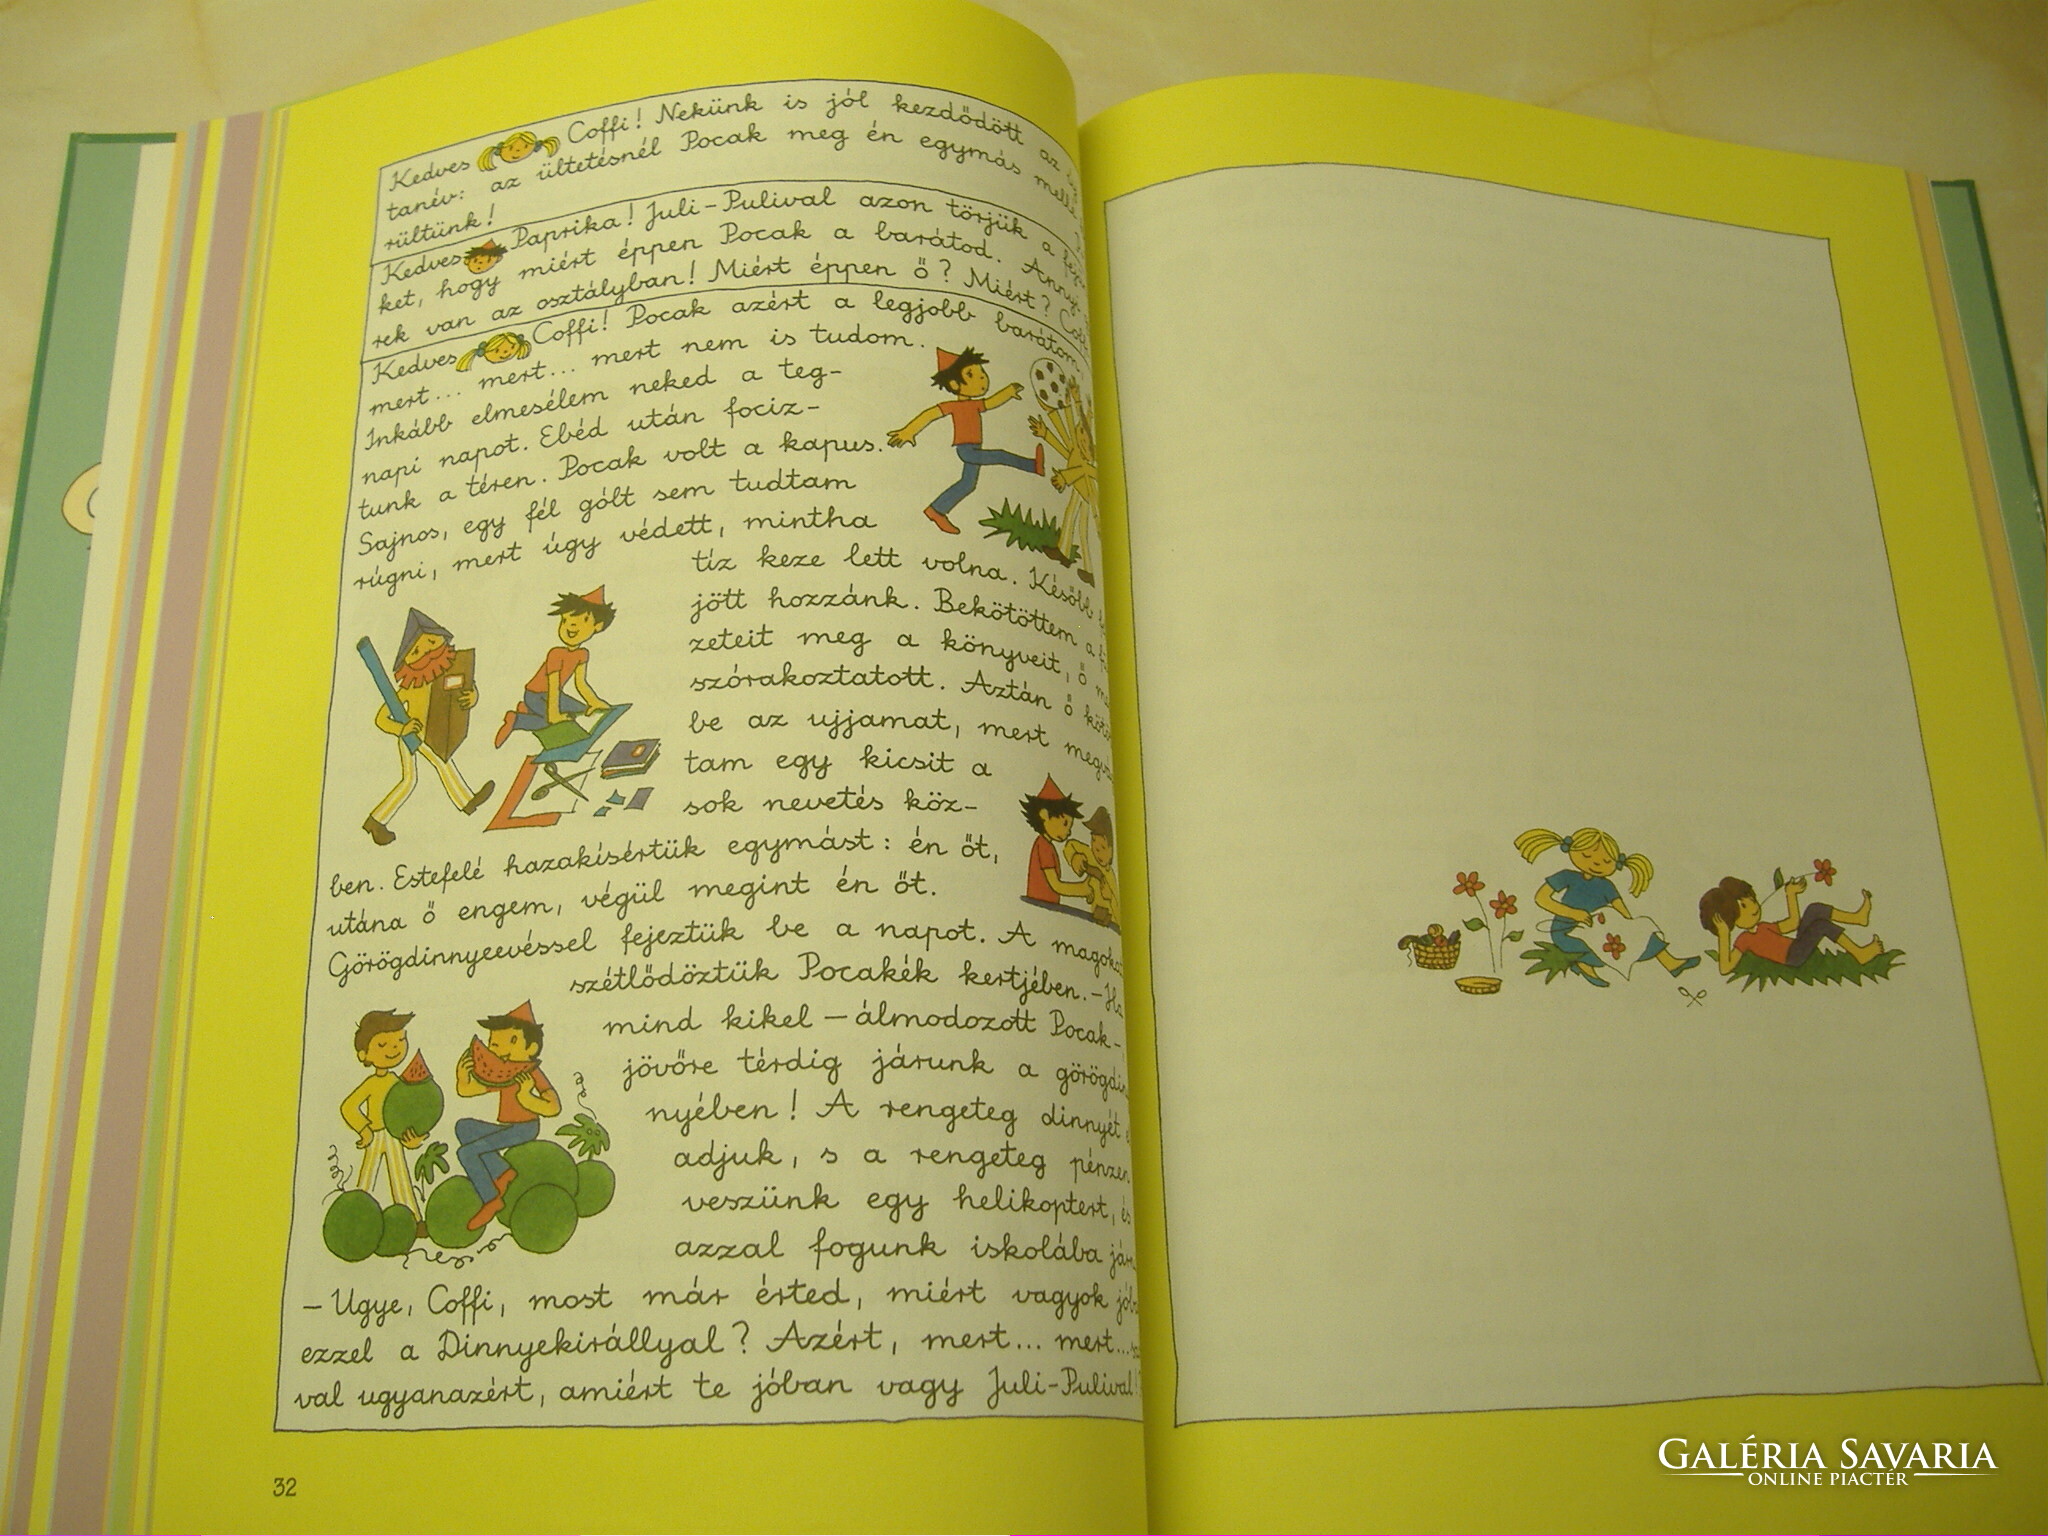 Kedves Coffi! Nekünk is jól kezdődött az
tanév: az ültetésnél Pocak meg én egymás mellé
rültünk!
Kedves Paprika! Juli-Pulival azon törjük a
ket, hogy miért éppen Pocak a barátod. Annyi
rek van az osztályban! Miért éppen ő? Miért?
Kedves Coffi! Pocak azért a legjobb barátom
mert... mert... mert nem is tudom.
Inkább elmesélem neked a teg-
napi napot. Ebéd után fociz-
tunk a téren. Pocak volt a kapus.
Sajnos, egy fél gólt sem tudtam
rúgni, mert úgy védett, mintha
tíz keze lett volna. Később
jött hozzánk. Bekötöttem a
zeteit meg a könyveit, ő
szórakoztatott. Aztán ő
be az ujjamat, mert
tam egy kicsit a
sok nevetés köz-
ben. Estefelé hazakísértük egymást: én őt,
utána ő engem, végül megint én őt.
Görögdinnyeevéssel fejeztük be a napot. A magokat
szétlődöztük Pocakék kertjében. - Ha
mind kikel - álmodozott Pocak -,
jövőre térdig járunk a
nyében! A rengeteg dinnyét
adjuk, s a rengeteg pénzen
veszünk egy helikoptert, és
azzal fogunk iskolába
- Ugye, Coffi, most már érted, miért vagyok
ezzel a Dinnyekirállyal? Azért, mert... mert...
val ugyanazért, amiért te jóban vagy Juli-Pulival!
32
GALÉRIA SAVARIA
ONLINE PIACTÉR